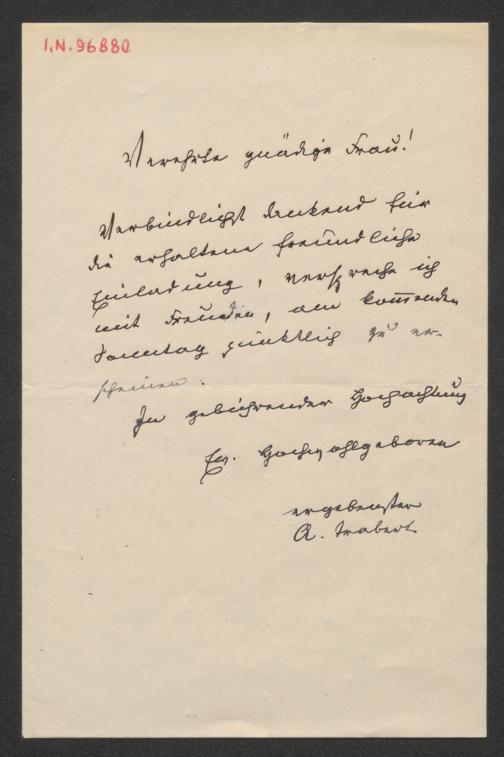 I.N. 96880
Verehrte gnädige Frau!
Verbindlichst dankend für
die erhaltene freundliche
Einladung, verspreche ich
mit Freuden, am kom̅enden
Sonntag pünktlich zu er-
scheinen.
In gebührender Hochachtung
Ew. Hochwohlgeboren
ergebenster
A. Trabert